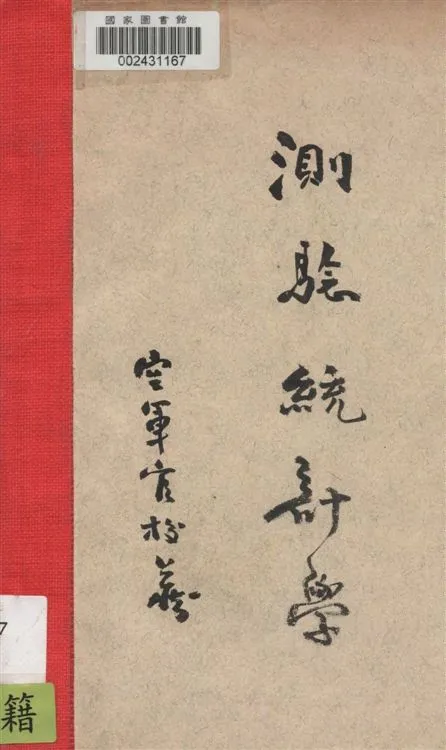 國家圖書館
002431167
測騐統計學
空軍官校
7
籍